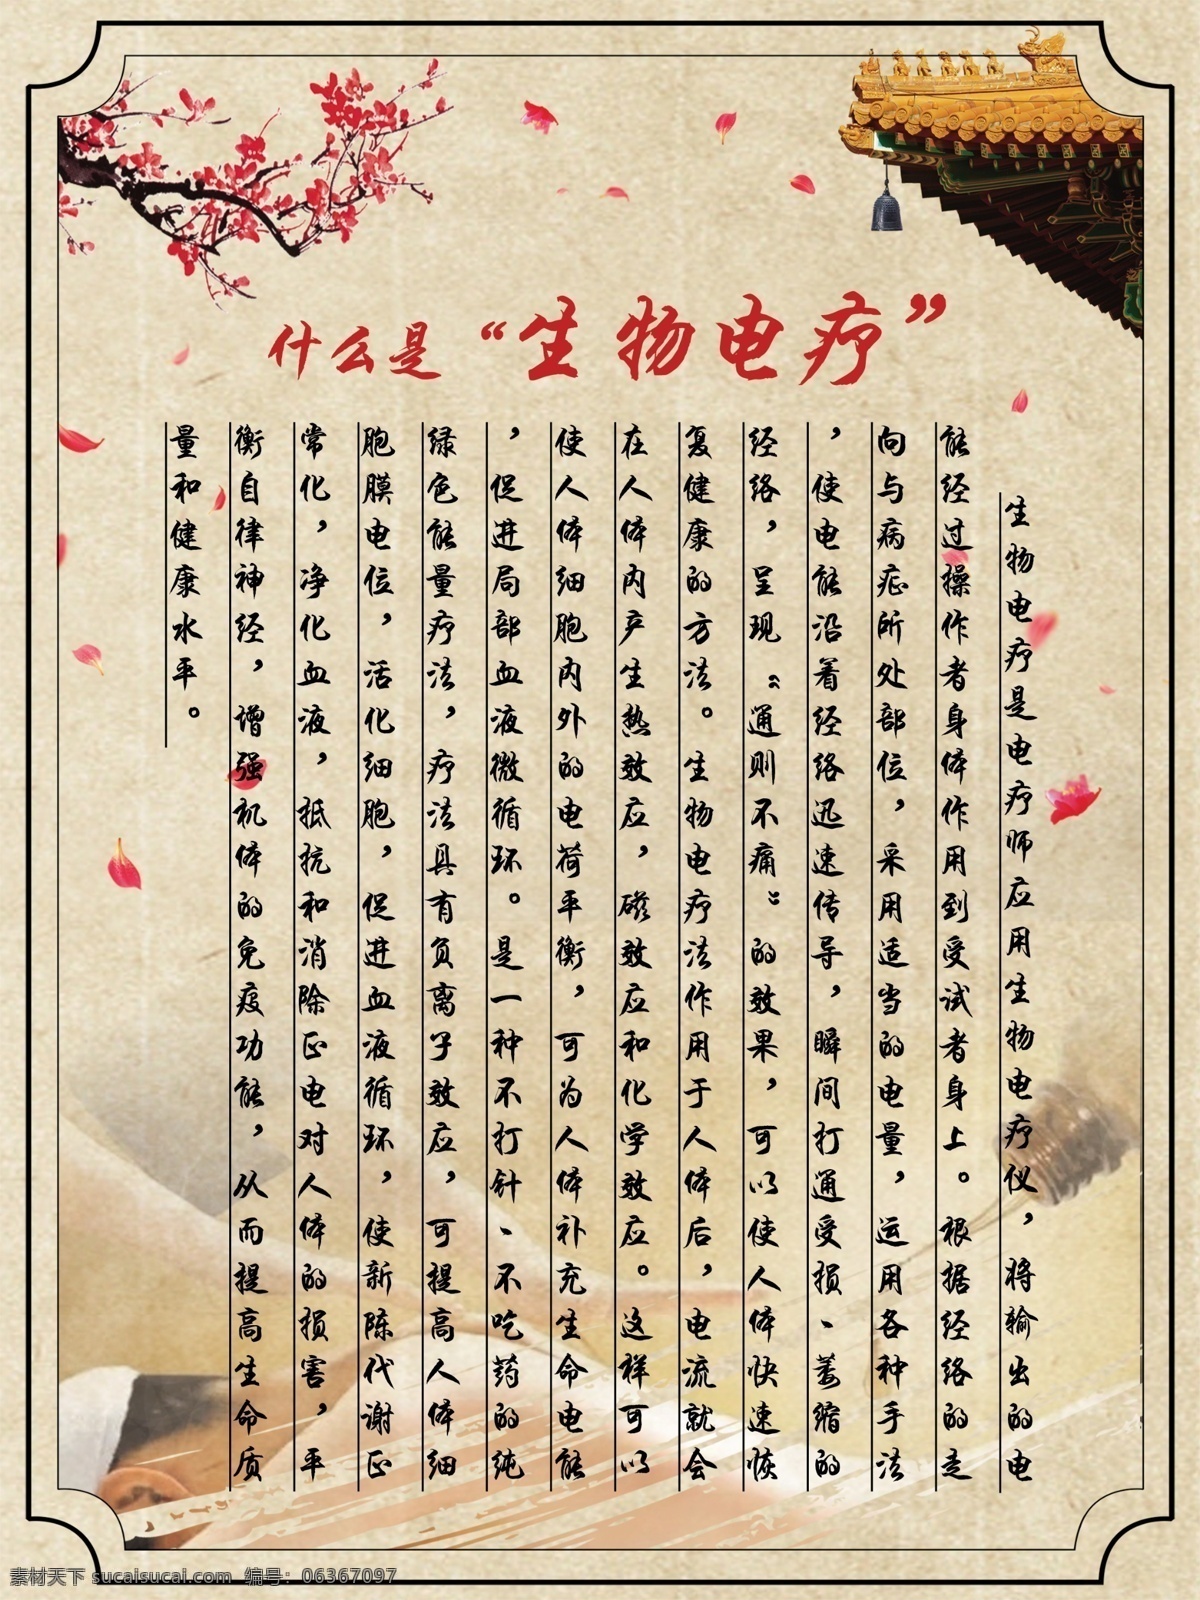 什么是“生物电疗”
生物电疗是电疗师应用生物电疗仪，将输出的电
能经过操作者身体作用到受试者身上。根据经络的走
向与病症所处部位，采用适当的电量，运用各种手法
，使电能沿着经络迅速传导，瞬间打通受损、萎缩的
经络，呈现“通则不痛”的效果，可以使人体快速恢
复健康的方法。生物电疗法作用于人体后，电流就会
在人体内产生热效应，磁效应和化学效应。这样可以
使人体细胞内外的电荷平衡，可为人体补充生命电能
，促进局部血液微循环。是一种不打针、不吃药的纯
绿色能量疗法，疗法具有负离子效应，可提高人体细
胞膜电位，活化细胞，促进血液循环，使新陈代谢正
常化，净化血液，抵抗和消除正电对人体的损害，平
衡自律神经，增强机体的免疫功能，从而提高生命质
量和健康水平。
素材天下 sucaisucai.com 编号：06367097